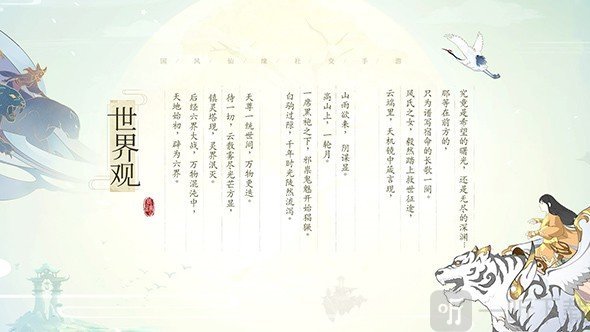 国/风/仙/缘/社/交/手/游
世界观
天地始初，辟为六界。
后经六界大战，万物混沌中，
镇灵塔现，灵界泯灭。
待一切，云散雾尽光芒方显，
天尊一统世间，万物更迭。
白驹过隙，千年时光陡然流泻。
一席黑袍之下，邪祟鬼魅开始猖獗。
高山上，一轮月。
山雨欲来，阴谋显。
云端里，天机镜中箴言现，
风氏之女，毅然踏上救世征途，
只为谱写宿命的长歌一阕。
那等在前方的，
究竟是希望的曙光，还是无尽的深渊…